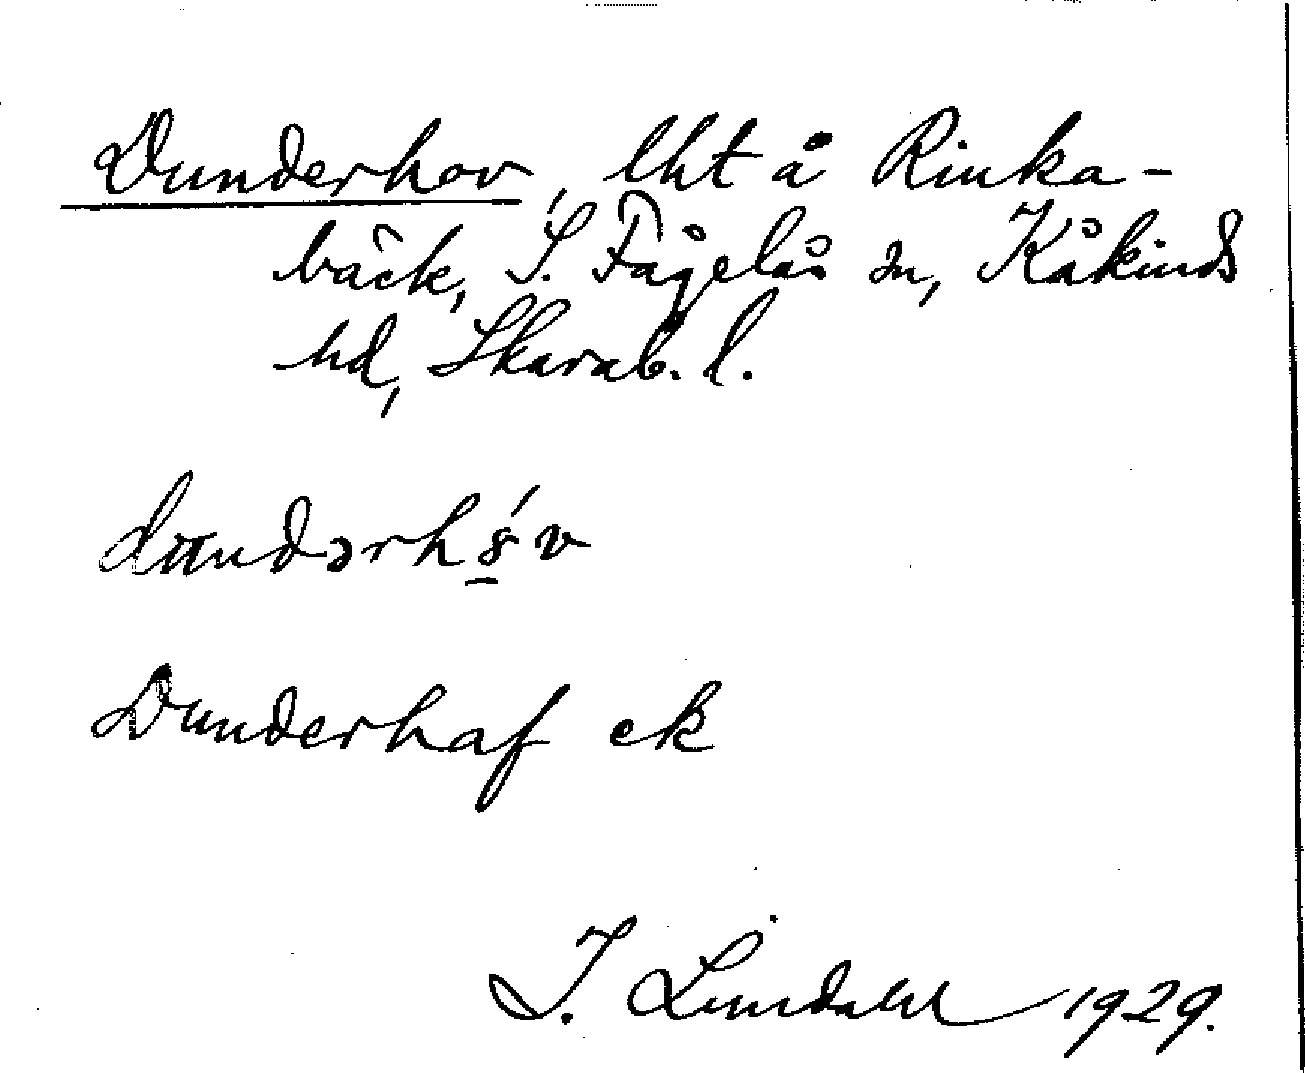 Dunderhov, lht å Rinka-
bäck, S. Fågelås sn, Kåkinds
hd, Skarab. l.
Dunderhaf ek
I. Lundahl 1929.